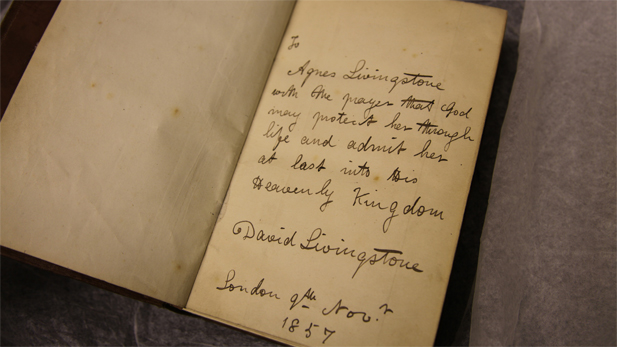 To
Agnes Livingstone
with the prayer that God
may protect her through
life and admit her
at last into His
Heavenly Kingdom
David Livingstone
London 9th Nov.r
1857